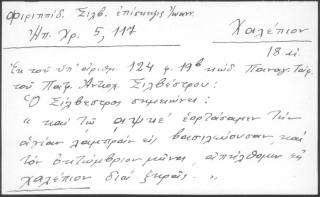 Φιριππίδ. Σιλβ. ἐπίσκεψις Ἰωαν.
Ἠπ. Χρ. 5, 117
Χαλέπιον
18 αἰ.
Ἐκ τοῦ ὑπ' ἀριθμ. 124 φ. 19β κώδ. Παναγ. Τάφ.
τοῦ Πατρ. Ἀντιοχ. Σιλβέστρου:
Ὁ Σίλβεστρος σημειώνει:
" καὶ τῷ αψκε' ἑορτάσαμεν τὴν
ἁγίαν λαμπρὰν εἰς βασιλεύουσαν, καὶ
τὸν ὀκτώμβριον μῆνα, ἀπήλθομεν εἰς
χαλέπιον διὰ ξηρᾶς. "